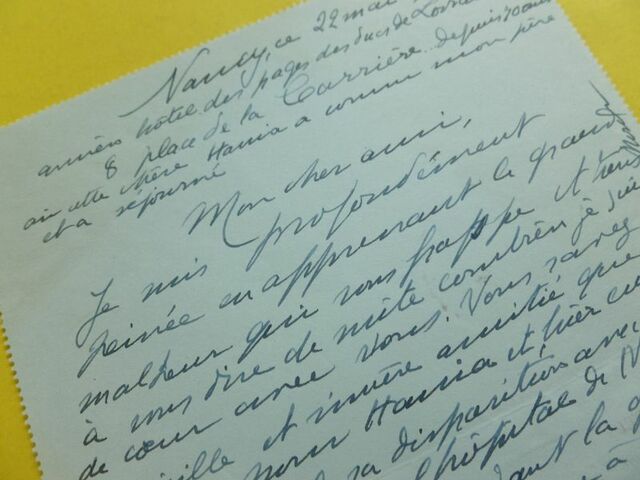 Nancy, ce 22 mai
ancien hôtel des pages des ducs de Lorraine
8 place de la Carrière depuis 70 ans
où cette chère Hania a connu mon père
et a séjourné
Mon cher ami,
Je suis profondément
peinée en apprenant le grand
malheur qui vous frappe et tiens
à vous dire de suite combien je suis
de cœur avec vous. Vous savez
et sincère amitié que
pour Hania et, hier
sa disposition avec
l'hôpital de N
la
à